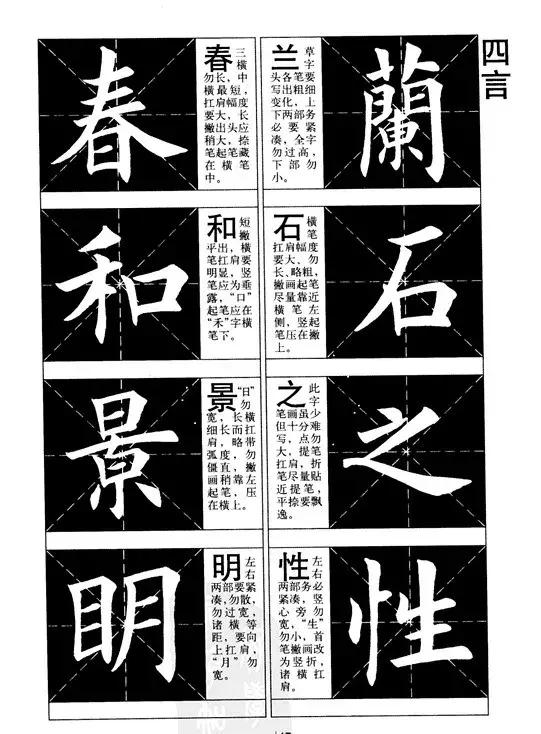 四言
蘭
兰 草字
头各笔要
写出粗细
变化，上
下两部务
必要紧
凑，全字
勿过高，
下部勿
小。
石
石 横笔
扛肩幅度
要大、勿
长、略粗，
撇画起笔
尽量靠近
横笔左
侧，竖起
笔压在撇
上。
之
之 此字
笔画虽少
但十分难
写，点勿
大，提笔
扛肩，折
笔尽量贴
近提笔，
平捺要飘
逸。
性
性 左右
两部务必
紧凑，竖
心旁勿
宽，“生”
勿小，首
笔撇画改
为竖折，
诸横扛
肩。
春
春 三横
勿长，中
横最短，
扛肩幅度
要大，长
撇出头应
稍大，捺
笔起笔藏
在横笔
中。
和
和 短撇
平出，横
笔扛肩要
明显，竖
笔应为垂
露，“口”
起笔应在
“禾”字横
笔下。
景
景 “日”勿
宽，长横
细长而扛
肩，略带
弧度，勿
僵直，撇
画稍靠左
起笔，压
在横上。
眀
明 左右
两部要紧
凑，勿散，
勿过宽，
诸横等
距，要向
上扛肩，
“月”勿
宽。